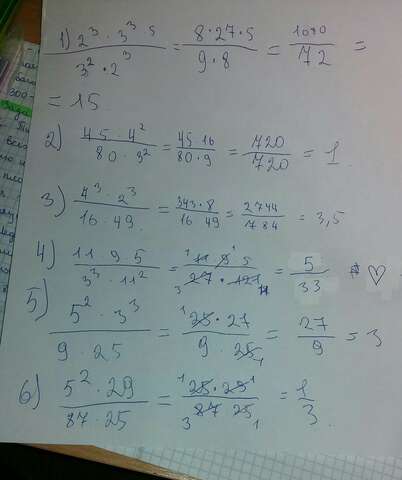 1) 2³ · 3³ · 5 / 3² · 2³ = 8 · 27 · 5 / 9 · 8 = 1080 / 72 =
= 15
2) 45 · 4² / 80 · 3² = 45 · 16 / 80 · 9 = 720 / 720 = 1
3) 7³ · 2³ / 16 · 49 = 343 · 8 / 16 49 = 2744 / 784 = 3,5
4) 11 9 5 / 3³ · 11² = 11 9 5 / 27 · 121 = 5 / 33 ♡
5) 5² · 3³ / 9 · 25 = 25 · 27 / 9 · 25 = 27 / 9 = 3
6) 5² · 29 / 87 · 25 = 25 · 29 / 87 25 = 1 / 3